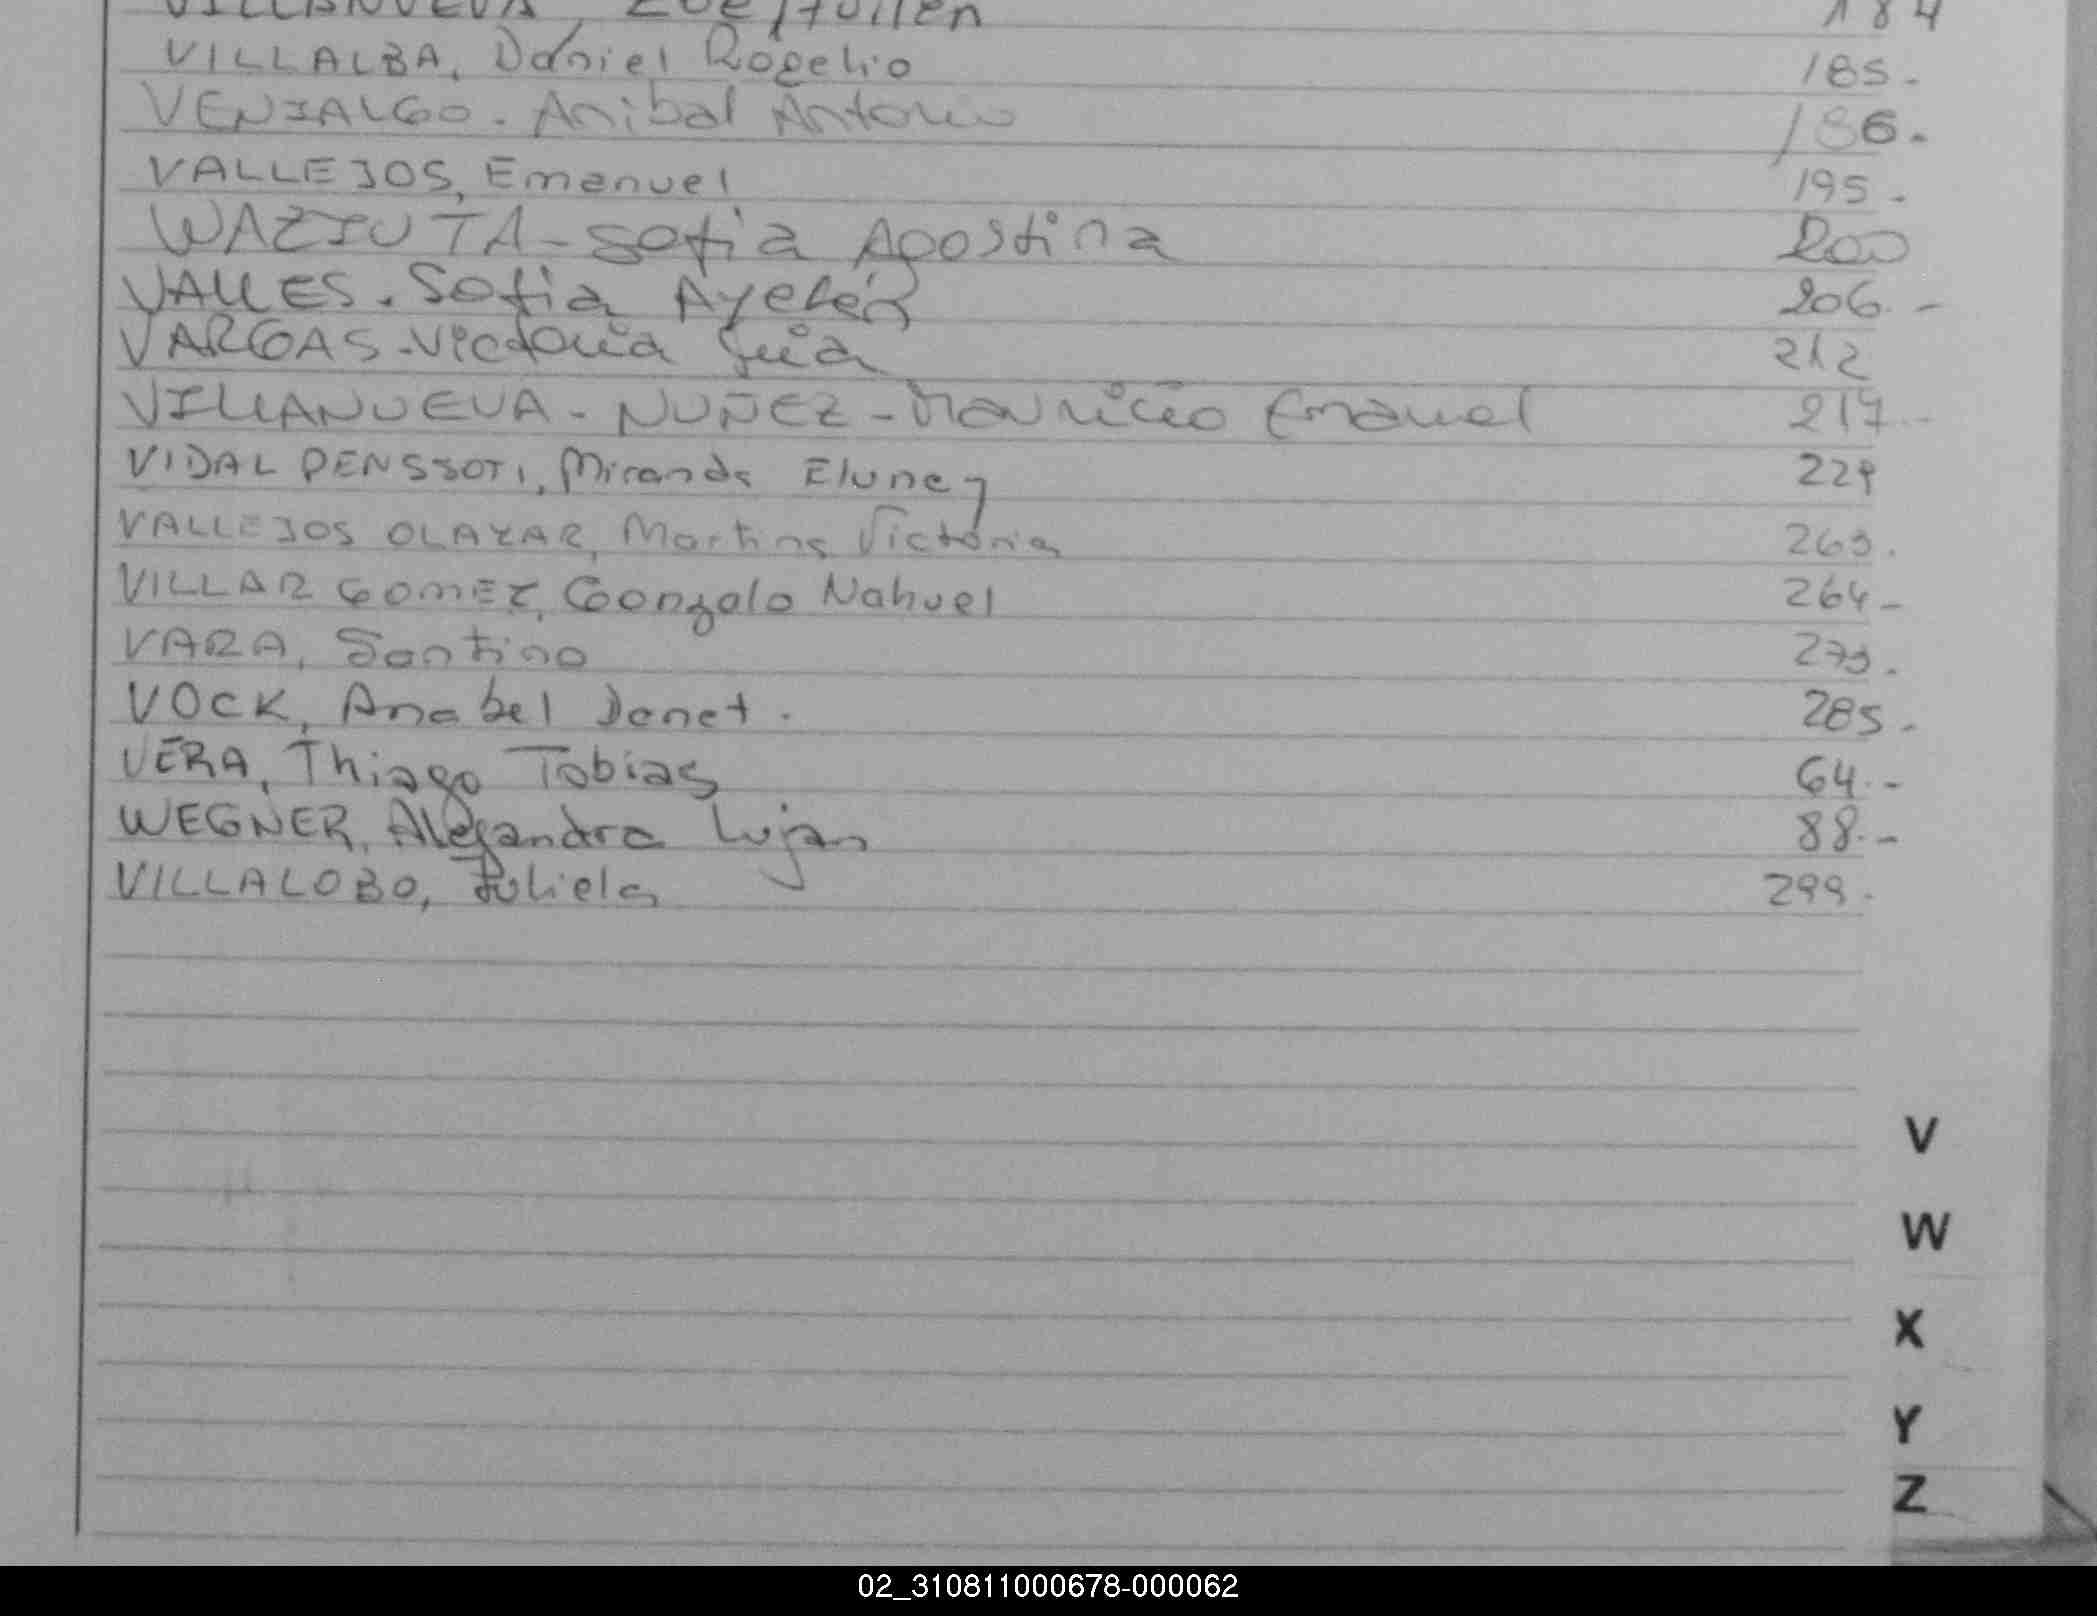 VILLANUEVA Zoe Ailien 184
VILLALBA, Daniel Rogelio 185.
VENIALGO. Anibal Antonio 186.
VALLEJOS, Emanuel 195.
WAZIUTA - Sofia Agostina 200
VALLES. Sofia Ayelén 206. -
VARGAS - Victoria 212
VILLANUEVA - NUÑEZ - Mauricio Emanuel 217. -
VIDAL PENSSOTI, Miranda Eluney 229
VALLEJOS OLAYAR, Martina Victoria 263.
VILLAR GOMEZ, Gonzalo Nahuel 264 -
VARA, Santino 273.
VOCK, Anabel Janet. 285.
VERA, Thiago Tobias 64. -
WEGNER, Alejandra Lujan 88. -
VILLALOBO, Julieta 299.
V
W
X
Y
Z
02_310811000678-000062